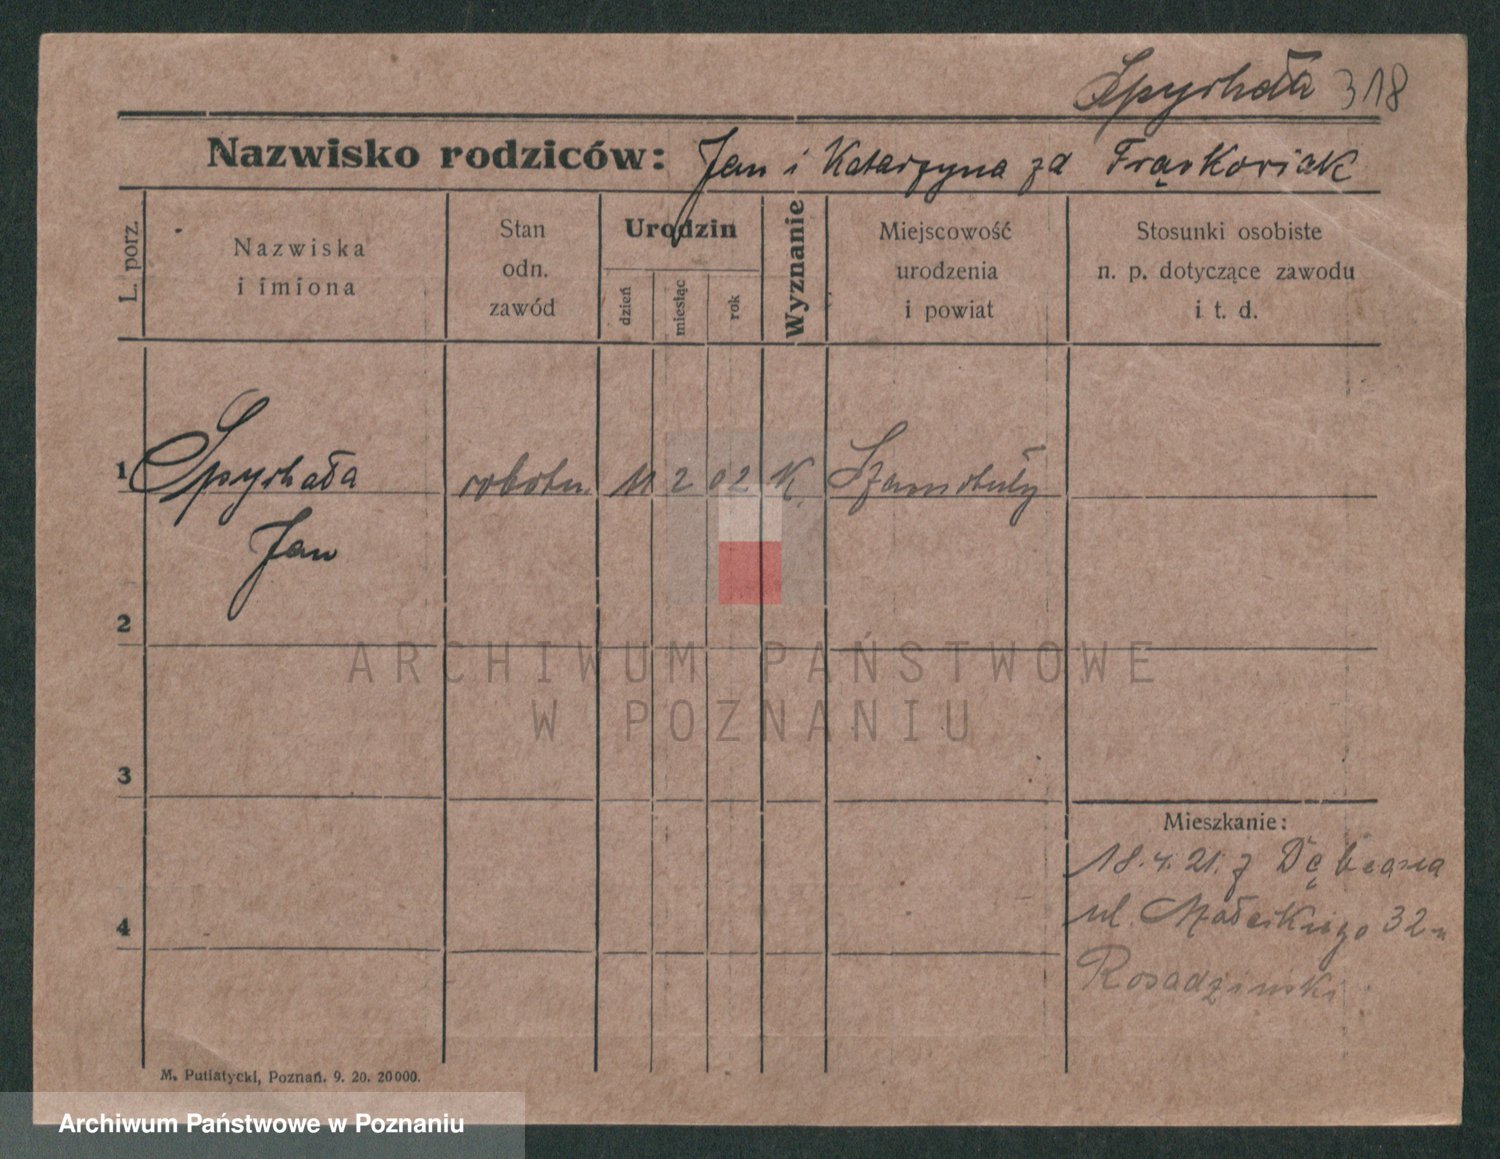 Spychała 318
Nazwisko rodziców: Jan i Katarzyna zd Frąckowiak
L. porz.
Nazwiska
i imiona
Stan
odn.
zawód
Urodzin
dzień
miesiąc
rok
Wyznanie
Miejscowość
urodzenia
i powiat
Stosunki osobiste
n. p. dotyczące zawodu
i t. d.
1 Spychała robotn. 11 2 02 K. Szamotuły
Jan
2
ARCHIWUM PAŃSTWOWE
W POZNANIU
3
Mieszkanie:
18.4.21. z
4
ul. Małeckiego 32
M. Putiatycki, Poznań. 9. 20. 20000.
Archiwum Państwowe w Poznaniu